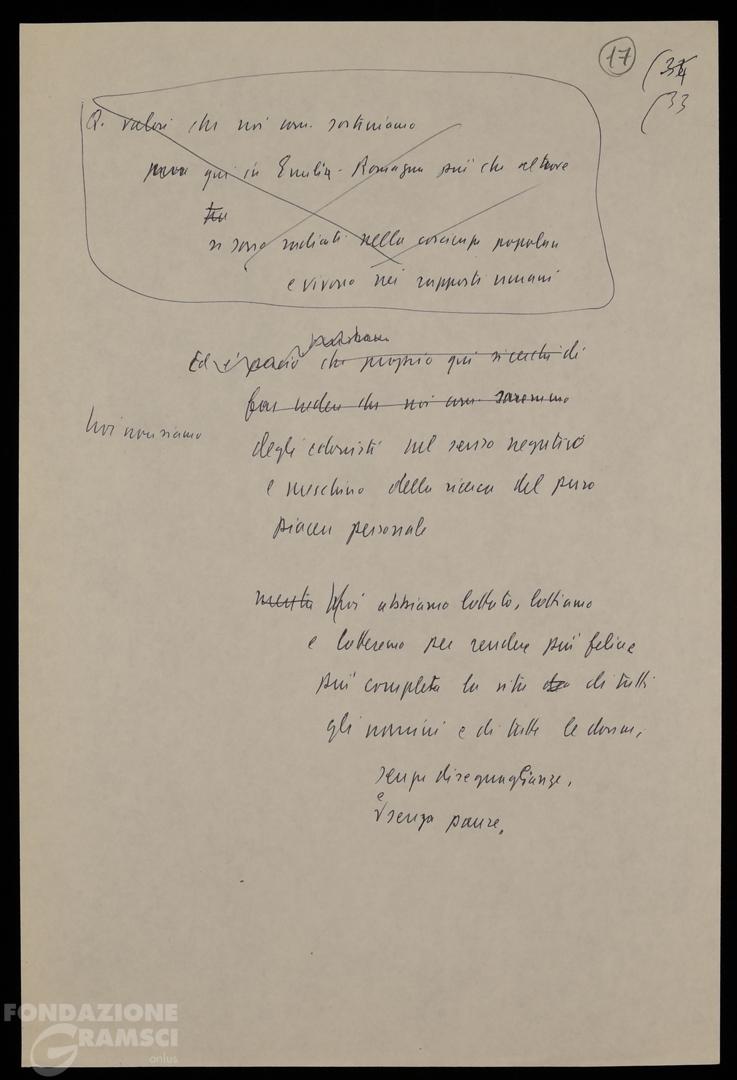 17
(34
(33
Q. valori che noi com. sosteniamo
qui in Emilia-Romagna più che altrove
si sono radicati nella coscienza popolare
e vivono nei rapporti umani
Ed è perciò che proprio qui si cerchi di
far vedere che noi com. saremmo
Noi non siamo
degli edonisti nel senso negativo
e meschino della ricerca del puro
piacere personale
Noi abbiamo lottato, lottiamo
e lotteremo per rendere più felice
più completa la vita di tutti
gli uomini e di tutte le donne,
senza diseguaglianze,
e senza paure.
FONDAZIONE
GRAMSCI
onlus